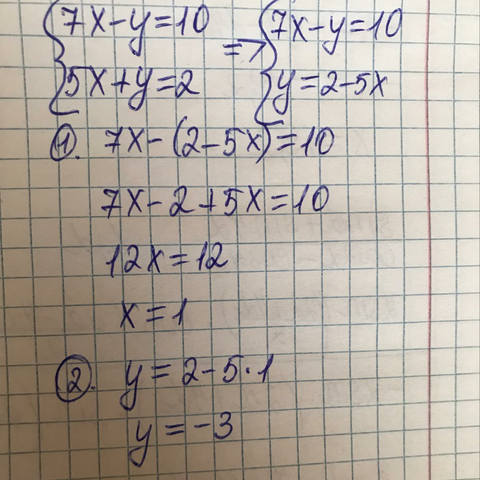 {7x-y=10 => {7x-y=10
{5x+y=2 {y=2-5x
①. 7x-(2-5x)=10
7x-2+5x=10
12x=12
x=1
②. y=2-5·1
y=-3